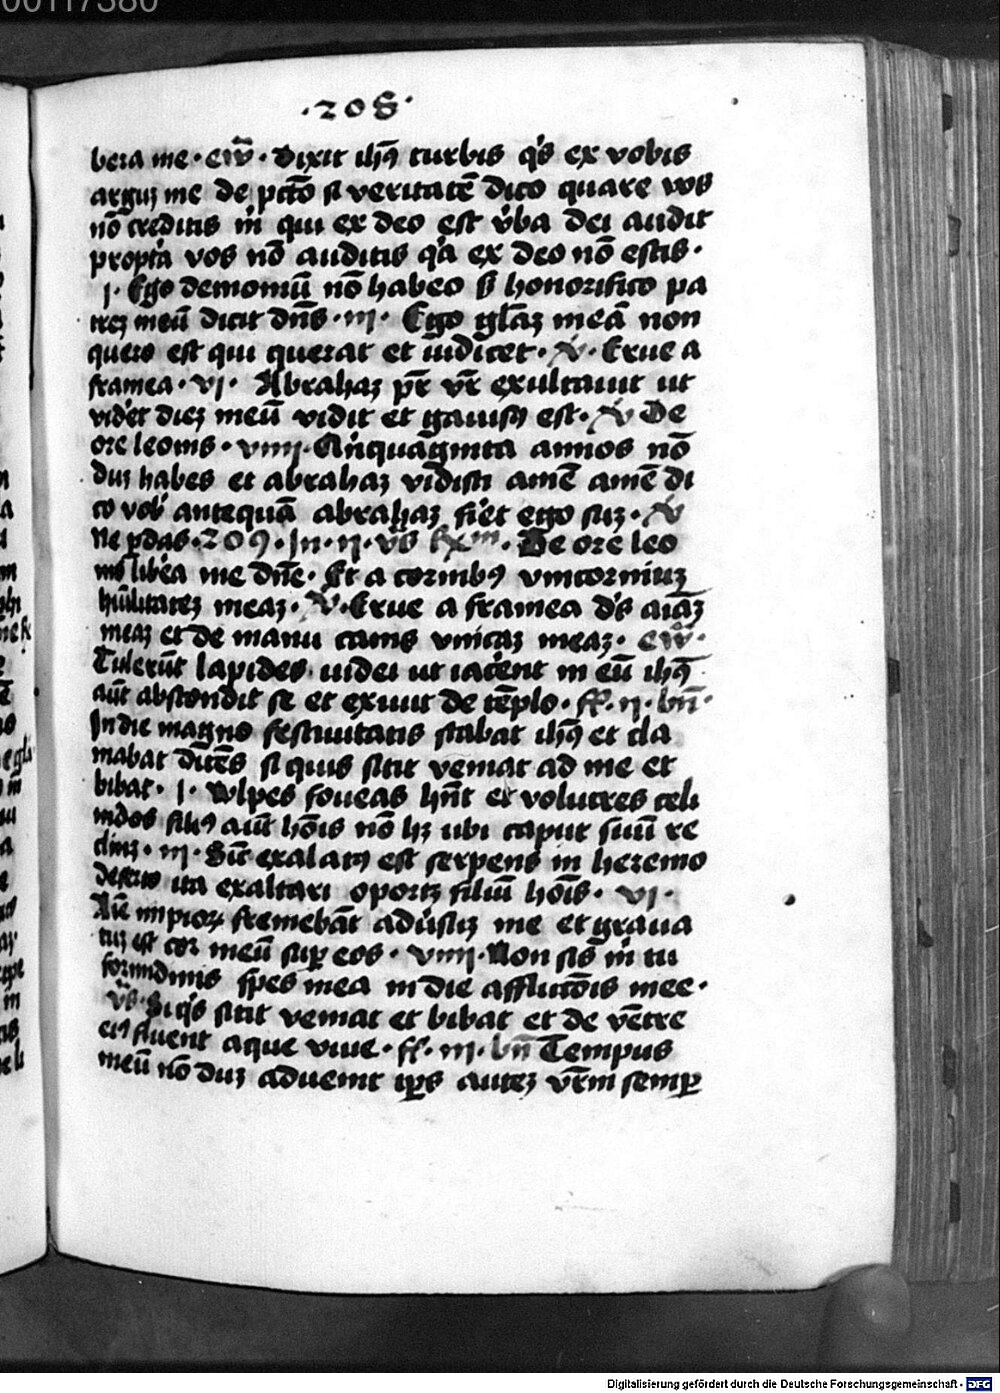 00117380
·208·
bera me · ew̄ · Dixit ihꝰ turbis qͥs ex vobis
arguꝫ me de pctō si veritatē dico quare vos
nō creditis m̄ qui ex deo est v̄ba dei audit
propt͛a vos nō auditis qͥa ex deo nō estis ·
j · Ego demoniū nō habeo sꝫ honorifico pa
treꝫ meū dicit dn̄s · iij · Ego gl̄aꝫ meā non
quero est qui querat et iudicet · v̄ · Erue a
framea · vj · Abrahaꝫ pr̄ vr̄ exultauit ut
videt dieꝫ meū vidit et gauisꝰ est · v̄ De
ore leonis · viiij · Qͥnquaginta annos nō
duꝫ habes et abrahaꝫ vidisti amē amē di
co vob̄ antequā abrahaꝫ fiet ego suꝫ · v̄
Ne ꝑdas · 209 · In · ij · v̄s · De ore leo
nis lib͛a me dn̄e · Et a cornibꝰ vnicorniuꝫ
hūilitateꝫ meaꝫ · v̄ · Erue a framea ds̄ aīaꝫ
meaꝫ et de manu canis vnicaꝫ meaꝫ · ew̄ ·
Tulerūt lapides iudei ut iac͛ent in eū ihꝰ
aūt abscondit se et exiuit de tēplo · ff · ij · bn̄ ·
In die magno festiuitatis stabat ihꝰ et cla
mabat dicēs si quis sitit veniat ad me et
bibat · j · Wlpes foueas hn̄t et volucres celi
nidos filiꝰ aūt hōis nō hꝫ ubi caput suū re
clinꝫ · iij · Sic̄ exaltatꝰ est serpens in heremo
deserto ita exaltari oportꝫ filiū hōis · vj ·
Aīe impioꝝ fremebāt adūsuꝫ me et graua
tuꝫ est cor meū suꝑ eos · viiij · Non sis m̄ tu
formidinis spes mea in die afflictōis mee ·
v̄s · Si qͥs sitit veniat et bibat et de vētre
eiꝰ fluent aque viue · ff · iij · bn̄ Tempus
meū nō duꝫ aduenit tp̄s auteꝫ vr̄m semꝑ
Digitalisierung gefördert durch die Deutsche Forschungsgemeinschaft - DFG